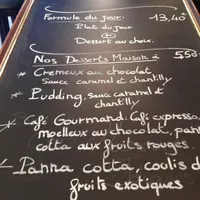 Formule du jour: 13,40
Plat du jour
+
Dessert au choix.
Nos Desserts Maison à 5,50
* Cremeux au chocolat
Sauce caramel et chantilly
* Pudding, sauce caramel et
chantilly
* Café Gourmand: Café expresso,
moelleux au chocolat, panna
cotta aux fruits rouges.
* Panna cotta, coulis de
fruits exotiques